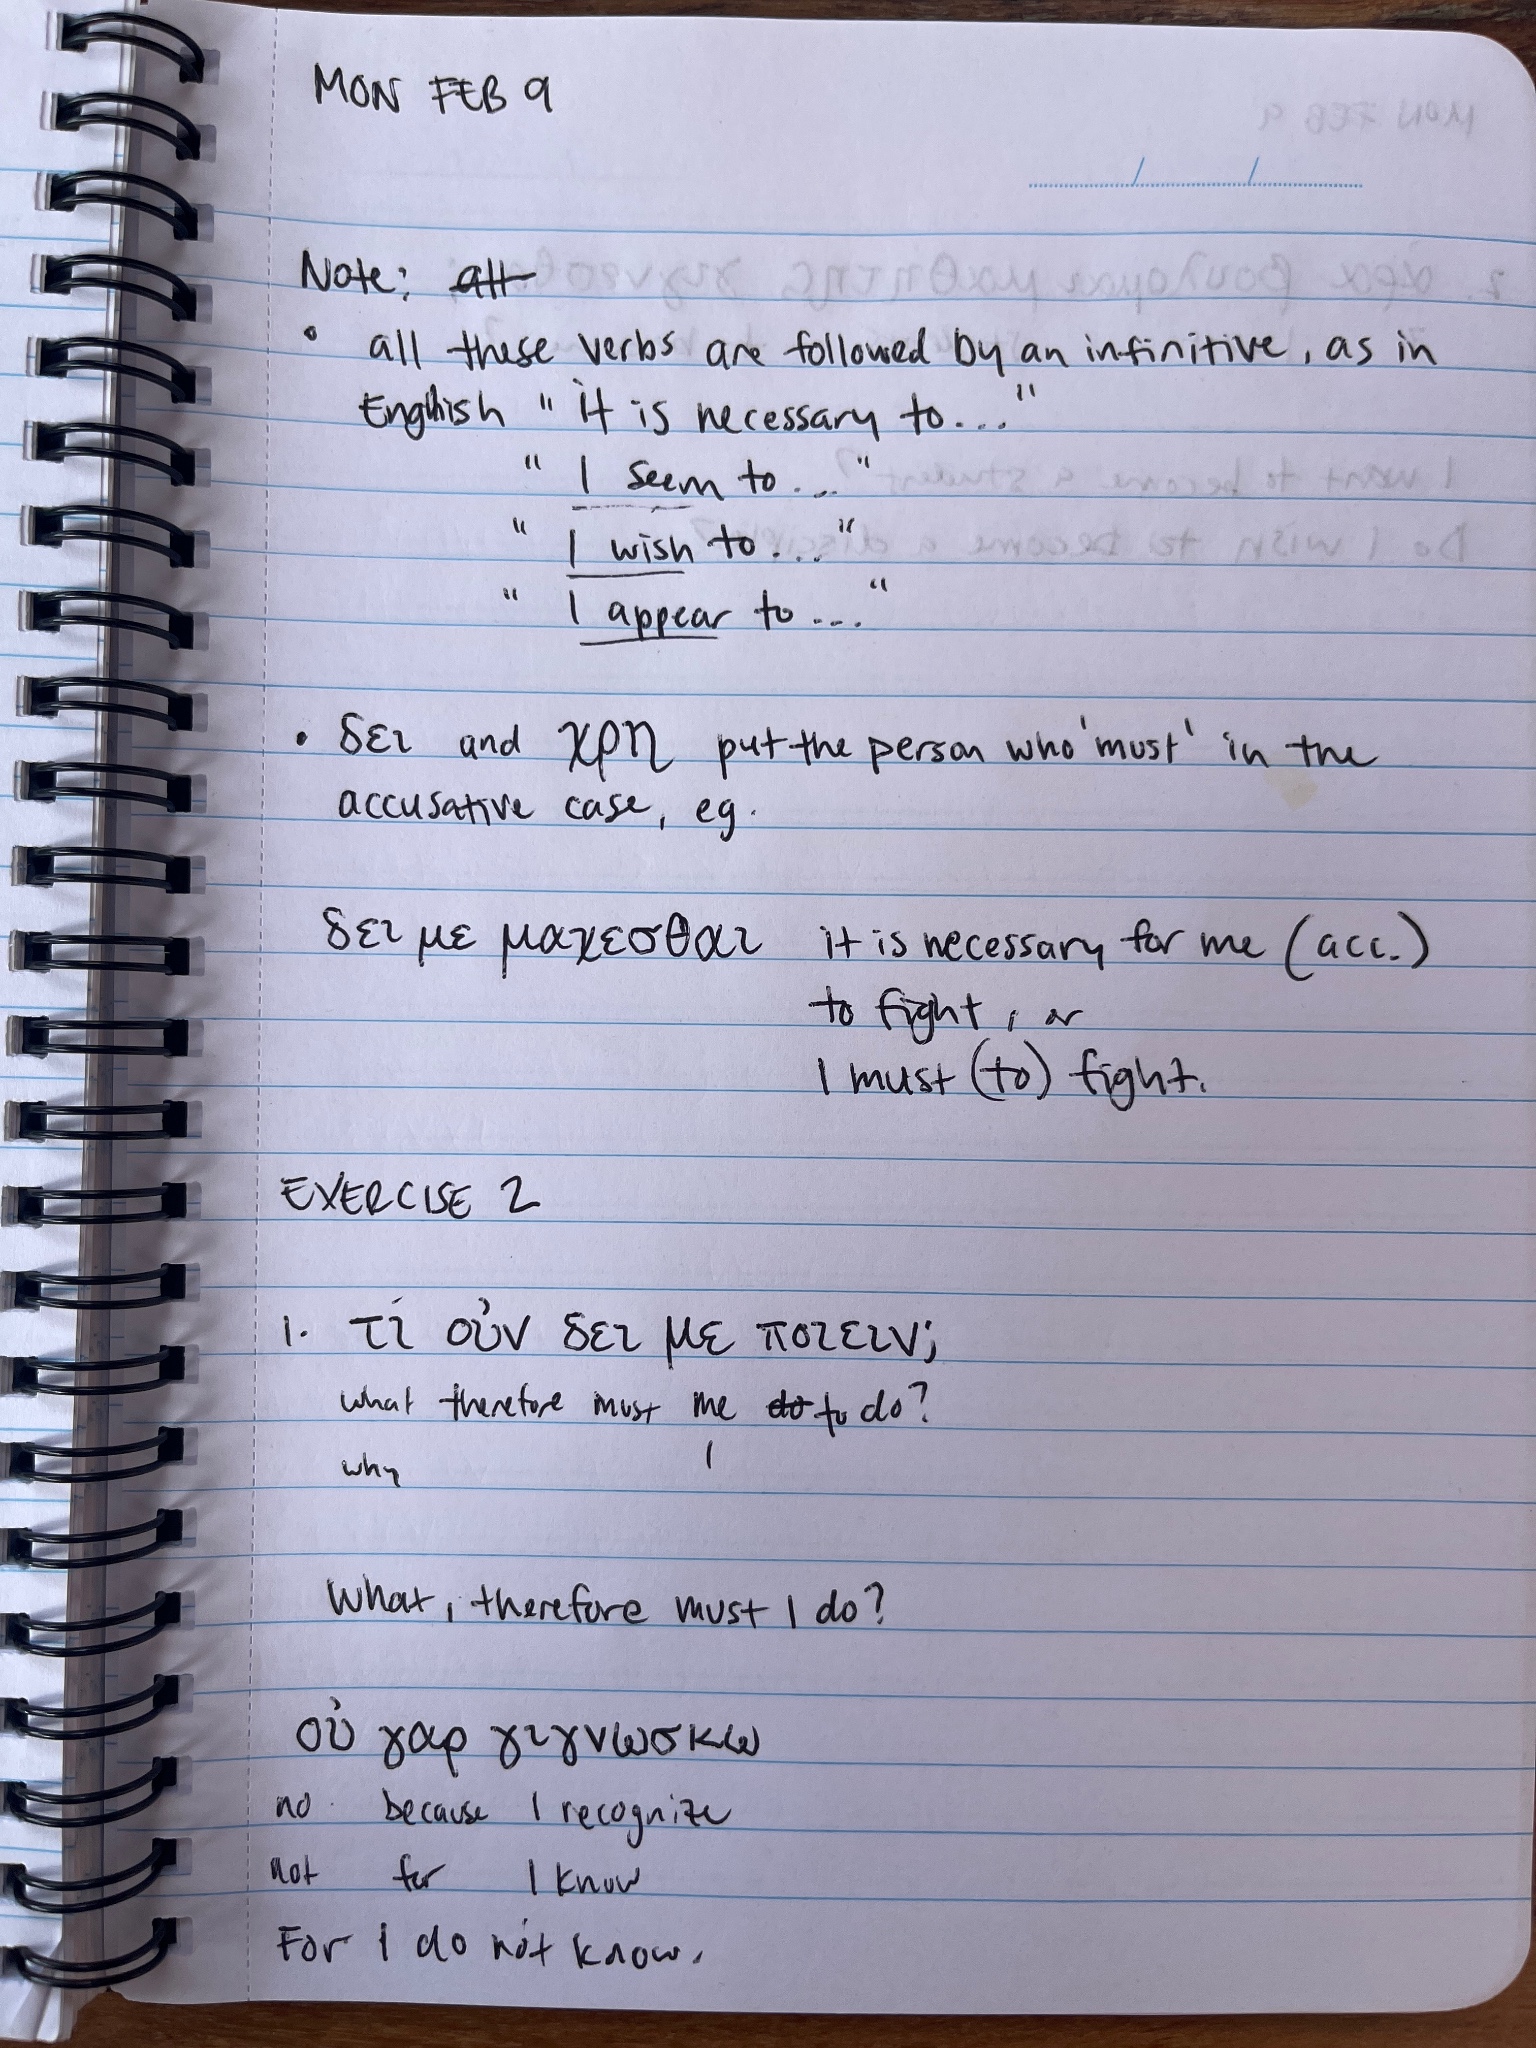 MON FEB 9
Note: all
• all these verbs are followed by an infinitive, as in
English "it is necessary to..."
" I seem to... "
" I wish to... "
" I appear to... "
• δει and χρη put the person who 'must' in the
accusative case, eg.
δει με μαχεσθαι it is necessary for me (acc.)
to fight, or
I must (to) fight.
EXERCISE 2
1. τί οὐν δει με ποιειν;
what therefore must me do to do?
why I
What, therefore must I do?
οὐ γαρ γιγνωσκω
no because I recognize
not for I know
For I do not know.